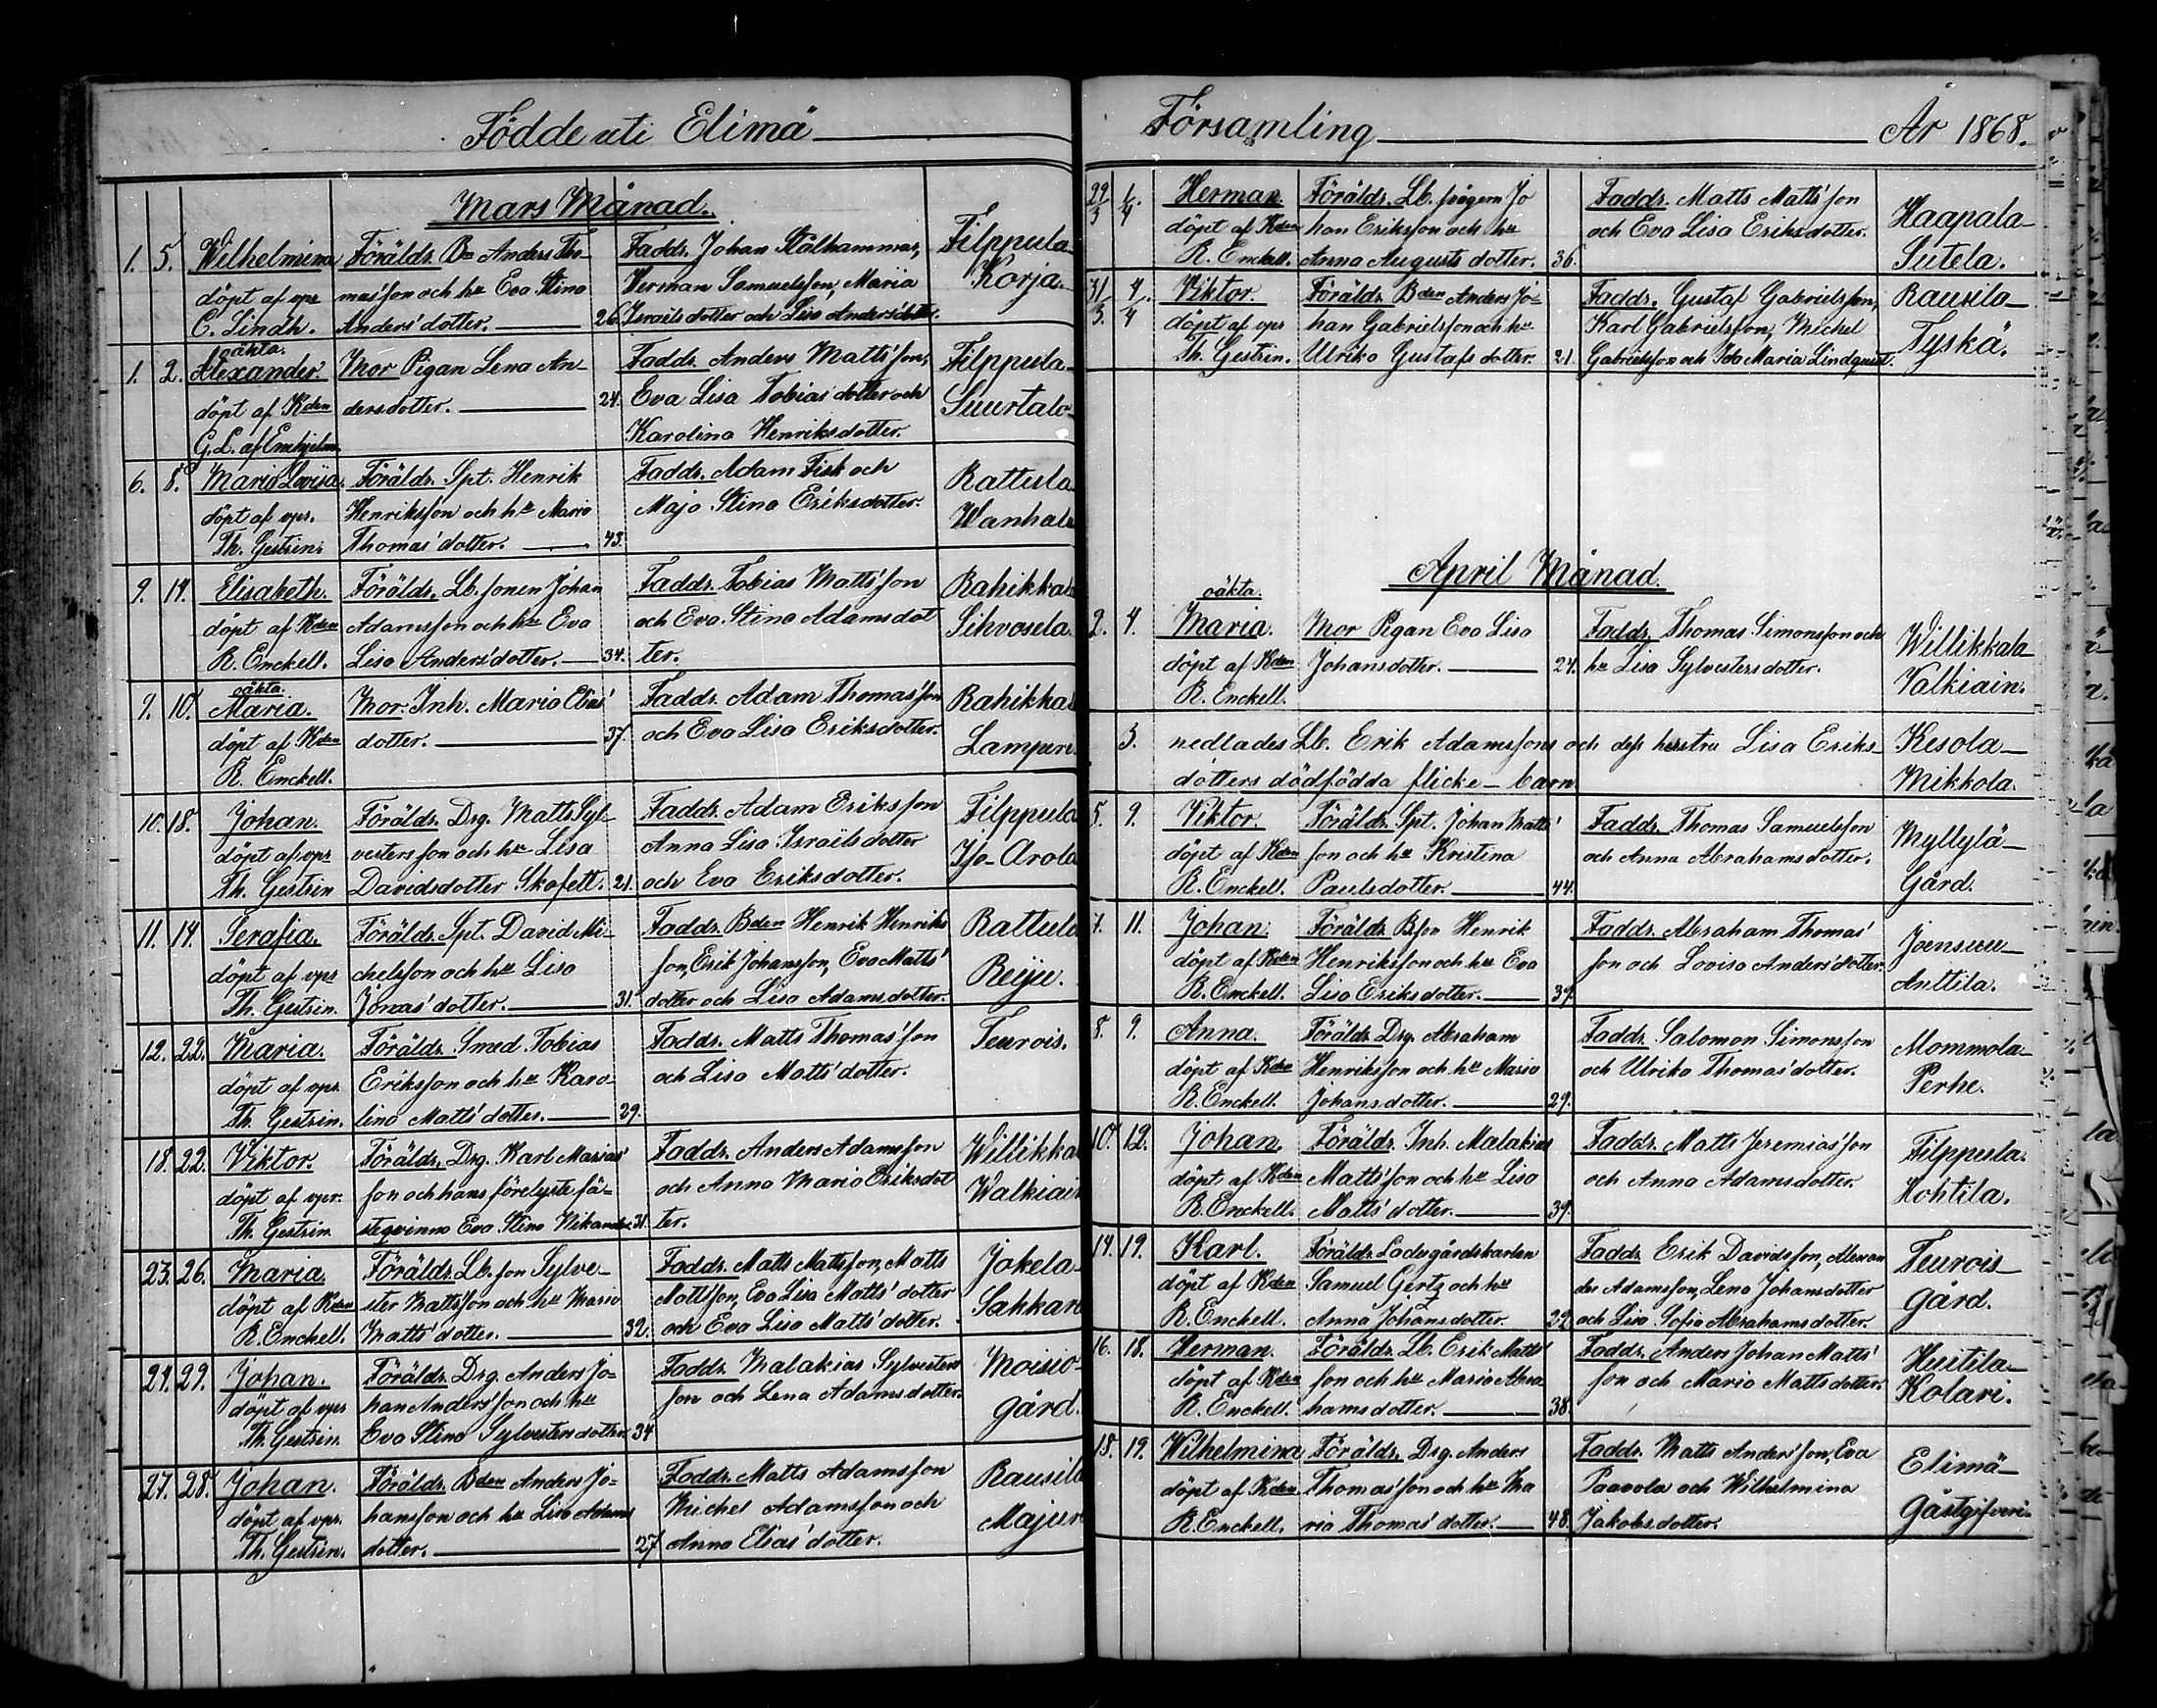 Födde uti Elimä
Mars Månad.
1. 5. Wilhelmina Föräldr. Bn Anders Tho- Faddr. Johan Stålhammar, Filppula-
döpt af vpr masson och hu Eva Stina Herman Samuelsson, Maria Korja.
C. Lindh. Anders'dotter. 26. Israelsdotter och Lisa Anders'dotter.
oäkta.
1. 2. Alexander. Mor Pigan Lena An- Faddr. Anders Matts'son, Filppula-
döpt af Kden dersdotter. 24. Eva Lisa Tobias'dotter och Suurtalo-
G. L. af Enehjelm. Karolina Henriksdotter.
6. 8. Maria Lovisa. Föräldr. Spt. Henrik Faddr. Adam Fisk och Rattula
döpt af vpr. Henriksson och hu Maria Maja Stina Eriksdotter. Wanhala
Th. Gestrin. Thomas'dotter. 43.
9. 14. Elisabeth. Föräldr. Lb. sonen Johan Faddr. Tobias Matts'son Rahikkala
döpt af Kden Adamsson och hu Eva och Eva Stina Adamsdot Sihvosela.
R. Enckell. Lisa Anders'dotter. 34. ter.
oäkta.
9. 10. Maria. Mor. Inh. Maria Elias' Faddr. Adam Thomas'son Rahikkal
döpt af Kden dotter. 37. och Eva Lisa Eriksdotter. Lampure
R. Enckell.
10. 18. Johan. Föräldr. Drg. Matts Syl- Faddr. Adam Eriksson Filppula
döpt af vpr vestersson och hu Lisa Anna Lisa Israelsdotter Iso-Arola
Th. Gestrin Davidsdotter Skafett. 21. och Eva Eriksdotter.
11. 14. Serafia. Föräldr. Spt. David Mi- Faddr. Bden Henrik Henriks Rattula
döpt af vpr chelsson och hu Lisa son, Erik Johansson, Eva Matts' Reiju.
Th. Gestrin. Jonas'dotter. 31. dotter och Lisa Adamsdotter.
12. 22. Maria. Föräldr. Smed. Tobias Faddr. Matts Thomas'son Teurois.
döpt af vpr. Eriksson och hu Karo- och Lisa Matts'dotter.
Th. Gestrin. lina Matts'dotter. 29.
18. 22. Viktor. Föräldr. Drg. Karl Mathias' Faddr. Anders Adamsson Willikkal
döpt af vpr. son och hans förelyste fä- och Anna Maria Eriksdot Walkiain
Th. Gestrin. steqvinna Eva Stina Nikander. 31. ter.
23. 26. Maria Föräldr. Lb. son Sylve- Faddr. Matts Mattsson, Matts Jokela-
döpt af Kden ster Mattsson och hu Maria Matts'son, Eva Lisa Matts'dotter Sahkari
R. Enckell. Matts'dotter. 32. och Eva Lisa Matts'dotter.
24. 29. Johan. Föräldr. Drg. Anders Jo- Faddr. Malakias Sylvesters Moisio-
döpt af vpr han Anders'son och hu son och Lena Adamsdotter. gård.
Th. Gestrin. Eva Stina Sylvestersdotter. 34
27. 28. Johan. Föräldr. Bden Anders Jo- Faddr. Matts Adamsson Rausila
döpt af vpr. hansson och hu Lisa Adams Michel Adamsson och Majuri
Th. Gestrin. dotter. 27 Anna Elias'dotter.
Församling År 1868.
29/3 1/4 Herman. Föräldr. Lb. Jo Faddr. Matts Matts'son Haapala-
döpt af Kden han Eriksson och hu och Eva Lisa Eriksdotter. Sutela.
R. Enckell. Anna Augustsdotter. 36.
31/3. 4/4 Viktor. Föräldr. Bden Anders Jo- Faddr. Gustaf Gabrielsson, Rausila-
döpt af vpr han Gabrielsson och hu Karl Gabrielsson, Michel Tyskä.
Th. Gestrin. Ulrika Gustafsdotter. 21. Gabrielsson och Ida Maria Lindquist.
April Månad.
oäkta.
2. 4. Maria. Mor Pigan Eva Lisa Faddr. Thomas Simonsson och Willikkala-
döpt af Kden Johansdotter. 24. hu Lisa Sylvestersdotter. Valkiain.
R. Enckell.
3. nedlades Lb. Erik Adamssons och dess hustru Lisa Eriks- Kesola-
dotters dödfödda flicke-barn Mikkola.
5. 9. Viktor. Föräldr. Spt. Johan Matts' Faddr. Thomas Samuelsson Myllylä-
döpt af Kden son och hu Kristina och Anna Abrahamsdotter. Gård.
R. Enckell. Paulsdotter. 44.
7. 11. Johan. Föräldr. Bson Henrik Faddr. Abraham Thomas' Joensuu-
döpt af Kden Henriksson och hu Eva son och Lovisa Anders'dotter. Anttila.
R. Enckell. Lisa Eriksdotter. 39.
8. 9. Anna. Föräldr. Drg. Abraham Faddr. Salomon Simonsson Mommola-
döpt af Kden Henriksson och hu Maria och Ulrika Thomas'dotter. Perhe.
R. Enckell. Johansdotter. 29.
10. 12. Johan. Föräldr. Inh. Malakias Faddr. Matts Jeremias'son Filppula.
döpt af Kden Matts'son och hu Lisa och Anna Adamsdotter. Kohtila.
R. Enckell. Matts'dotter. 39.
14. 19. Karl. Föräldr. Ladugårdskarlen Faddr. Erik Davidsson, Alexan Teurois-
döpt af Kden Samuel Gertz och hu der Adamsson, Lena Johansdotter gård.
R. Enckell. Anna Johansdotter. 29. och Lisa Sofia Abrahamsdotter.
16. 18. Herman. Föräldr. Lb. Erik Matts' Faddr. Anders Johan Matts' Huitila-
döpt af Kden son och hu Maria Abra son och Maria Mattsdotter. Kolari.
R. Enckell. hamsdotter. 38.
18. 19. Wilhelmina Föräldr. Drg. Anders Faddr. Matts Anders'son, Eva Elimä-
döpt af Kden Thomas'son och hu Ma Paavola och Wilhelmina Gästgifveri.
R. Enckell. ria Thomas'dotter. 48. Jakobsdotter.